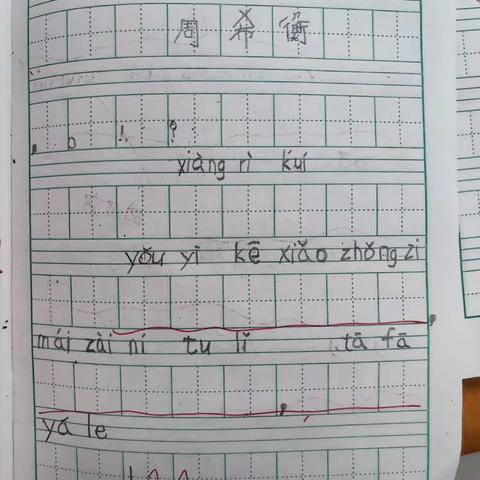 周希衡
， 。 ！ ？
xiàng rì kuí
yǒu yì kē xiǎo zhǒng zi ，
mái zài ní tu lǐ ， tā fā
yá le